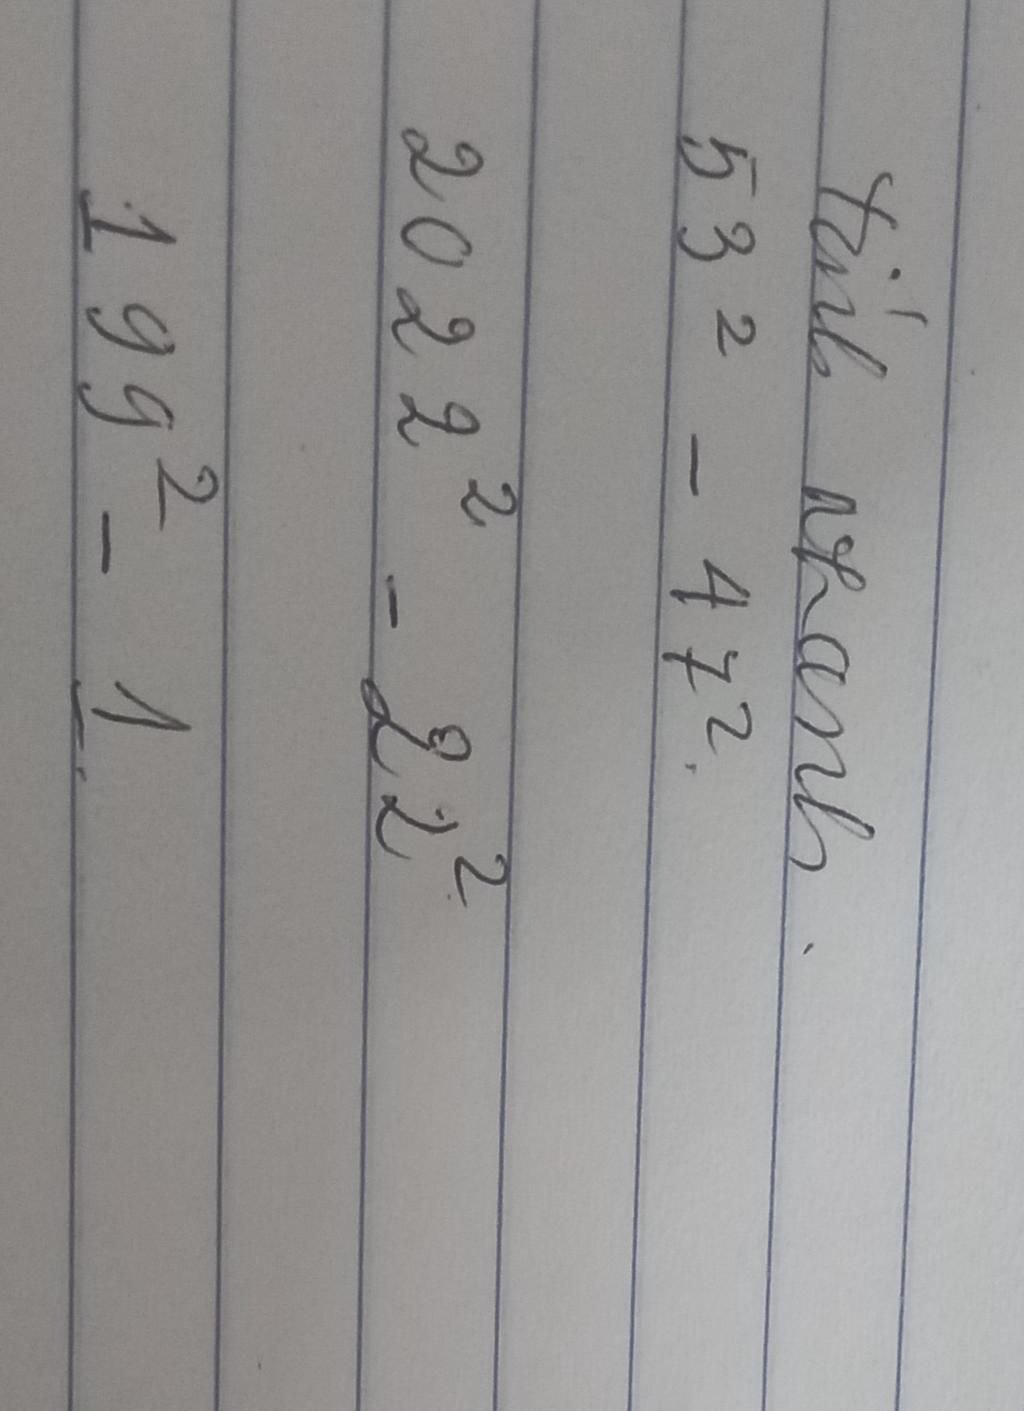 tính nhanh.
53² - 47².
2022² - 22²
199² - 1.